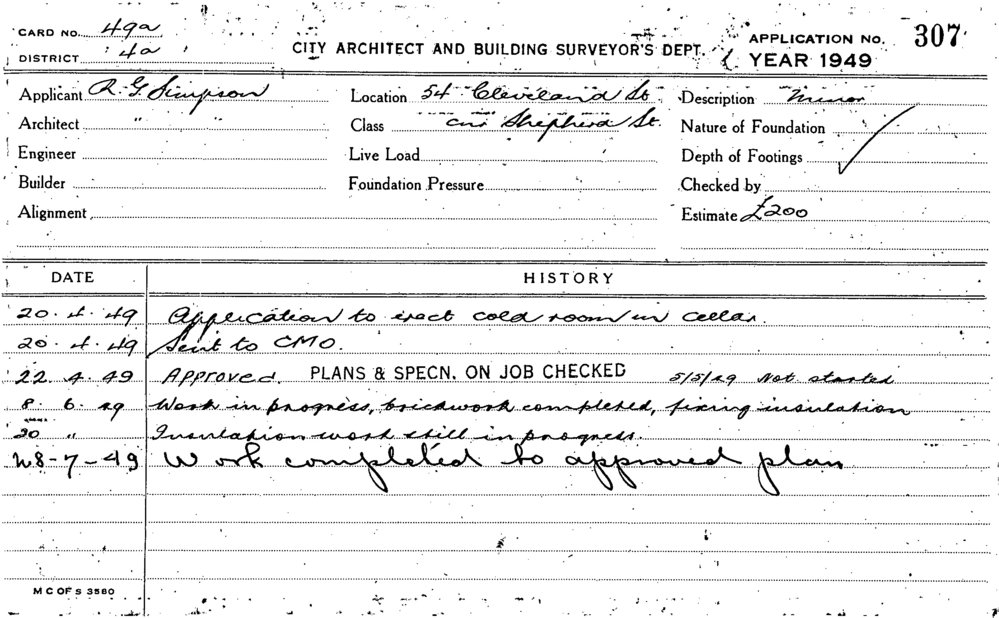 CARD No. 49a
DISTRICT 4a
CITY ARCHITECT AND BUILDING SURVEYOR'S DEPT.
APPLICATION No. 307
YEAR 1949
Applicant R. G. Simpson Location 54 Cleveland St. Description Minor
Architect " Class cnr Shepherd St. Nature of Foundation
Engineer Live Load Depth of Footings
Builder Foundation Pressure Checked by
Alignment Estimate £200
DATE HISTORY
20. 4. 49 Application to erect cold room in cellar.
20. 4. 49 Sent to CMO.
22. 4. 49 Approved. PLANS & SPECN. ON JOB CHECKED 5/5/49 Not started
8. 6. 49 Work in progress, brickwork completed, fixing insulation
20 " Insulation work still in progress.
-7-49 Work completed to approved plan
M C OF S 3580